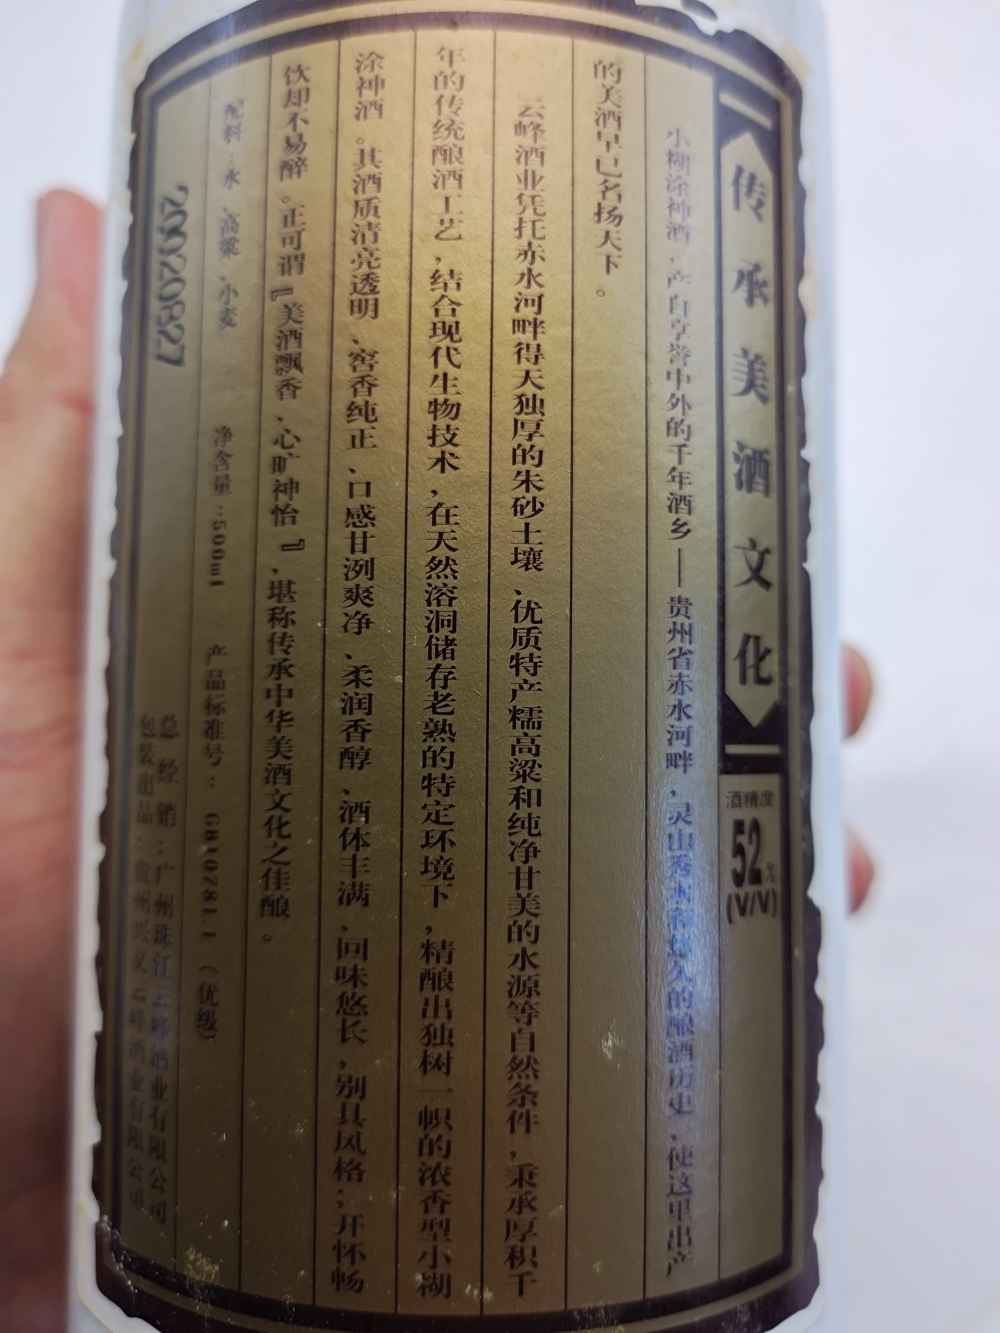 传承美酒文化
酒精度
52%
(V/V)
小糊涂神酒，产自享誉中外的千年酒乡——贵州省赤水河畔，灵山秀水和悠久的酿酒历史，使这里出产
的美酒早已名扬天下。
云峰酒业凭托赤水河畔得天独厚的朱砂土壤、优质特产糯高粱和纯净甘美的水源等自然条件，秉承厚积千
年的传统酿酒工艺，结合现代生物技术，在天然溶洞储存老熟的特定环境下，精酿出独树一帜的浓香型小糊
涂神酒。其酒质清亮透明、窖香纯正、口感甘洌爽净、柔润香醇、酒体丰满、回味悠长，别具风格；开怀畅
饮却不易醉。正可谓『美酒飘香、心旷神怡』，堪称传承中华美酒文化之佳酿。
配料：水、高粱、小麦 净含量：500ml 产品标准号：GB10781.1（优级）
20020827
总经销：广州珠江云峰酒业有限公司
包装出品：贵州兴义云峰酒业有限公司